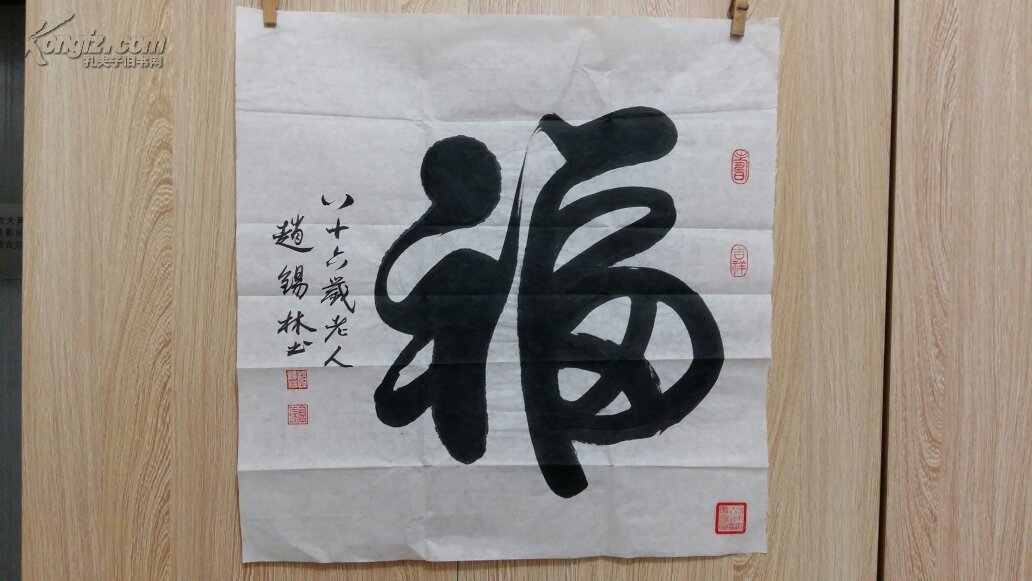 福
八十六歲老人
趙錫林书
吉祥
Kongfz.com
孔夫子旧书网